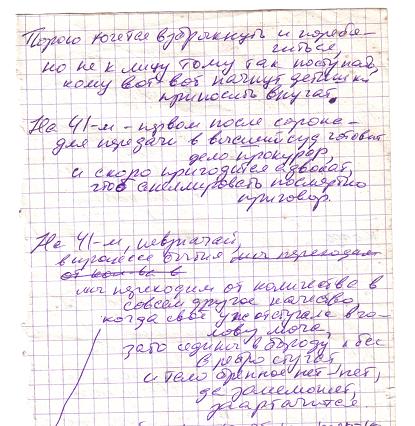 Порою хочется взбрыкнуть и поребя-
читься,
но не к лицу тому так поступать,
кому вот вот начнут детишки
приносить внучат.
На 41-м - первом после сорока -
для передачи в высший суд готовит
дело прокурор,
и скоро пригодится адвокат,
чтоб апеллировать посмертно
приговор.
На 41-м, невзначай,
в процессе бытия мы переходим
от кол-ва в
мы переходим от количества в
совсем другое качество,
когда своё уж отстучала в го-
лову моча,
зато седина в бороду и бес
в ребро стучат
и тело бренное нет-нет,
да занеможет,
заартачится